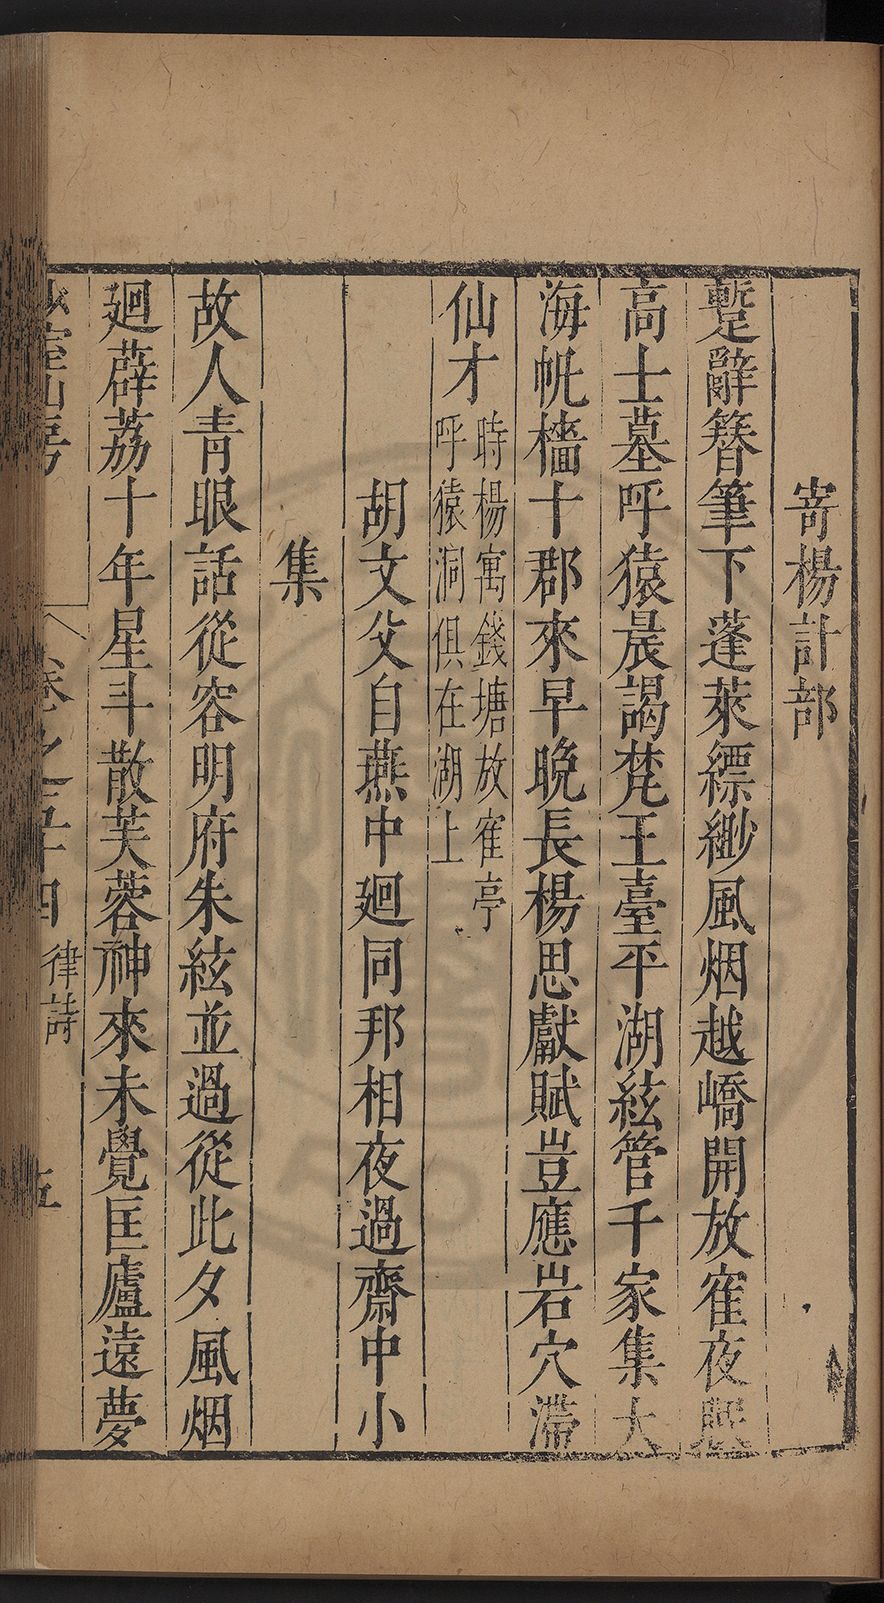 寄楊計部
蹔辭簪筆下蓬萊縹緲風烟越嶠開放寉夜
高士墓呼猿晨謁梵王臺平湖絃管千家集大
海帆檣十郡來早晚長楊思獻賦豈應岩穴滯
仙才
時楊寓錢塘放寉亭
呼猿洞俱在湖上
胡文父自燕中廻同邦相夜過齋中小
集
故人青眼話從容明府朱絃並過從此夕風烟
廻薜荔十年星斗散芙蓉神來未覺匡廬遠夢
室山房
卷之五十四
律詩
五